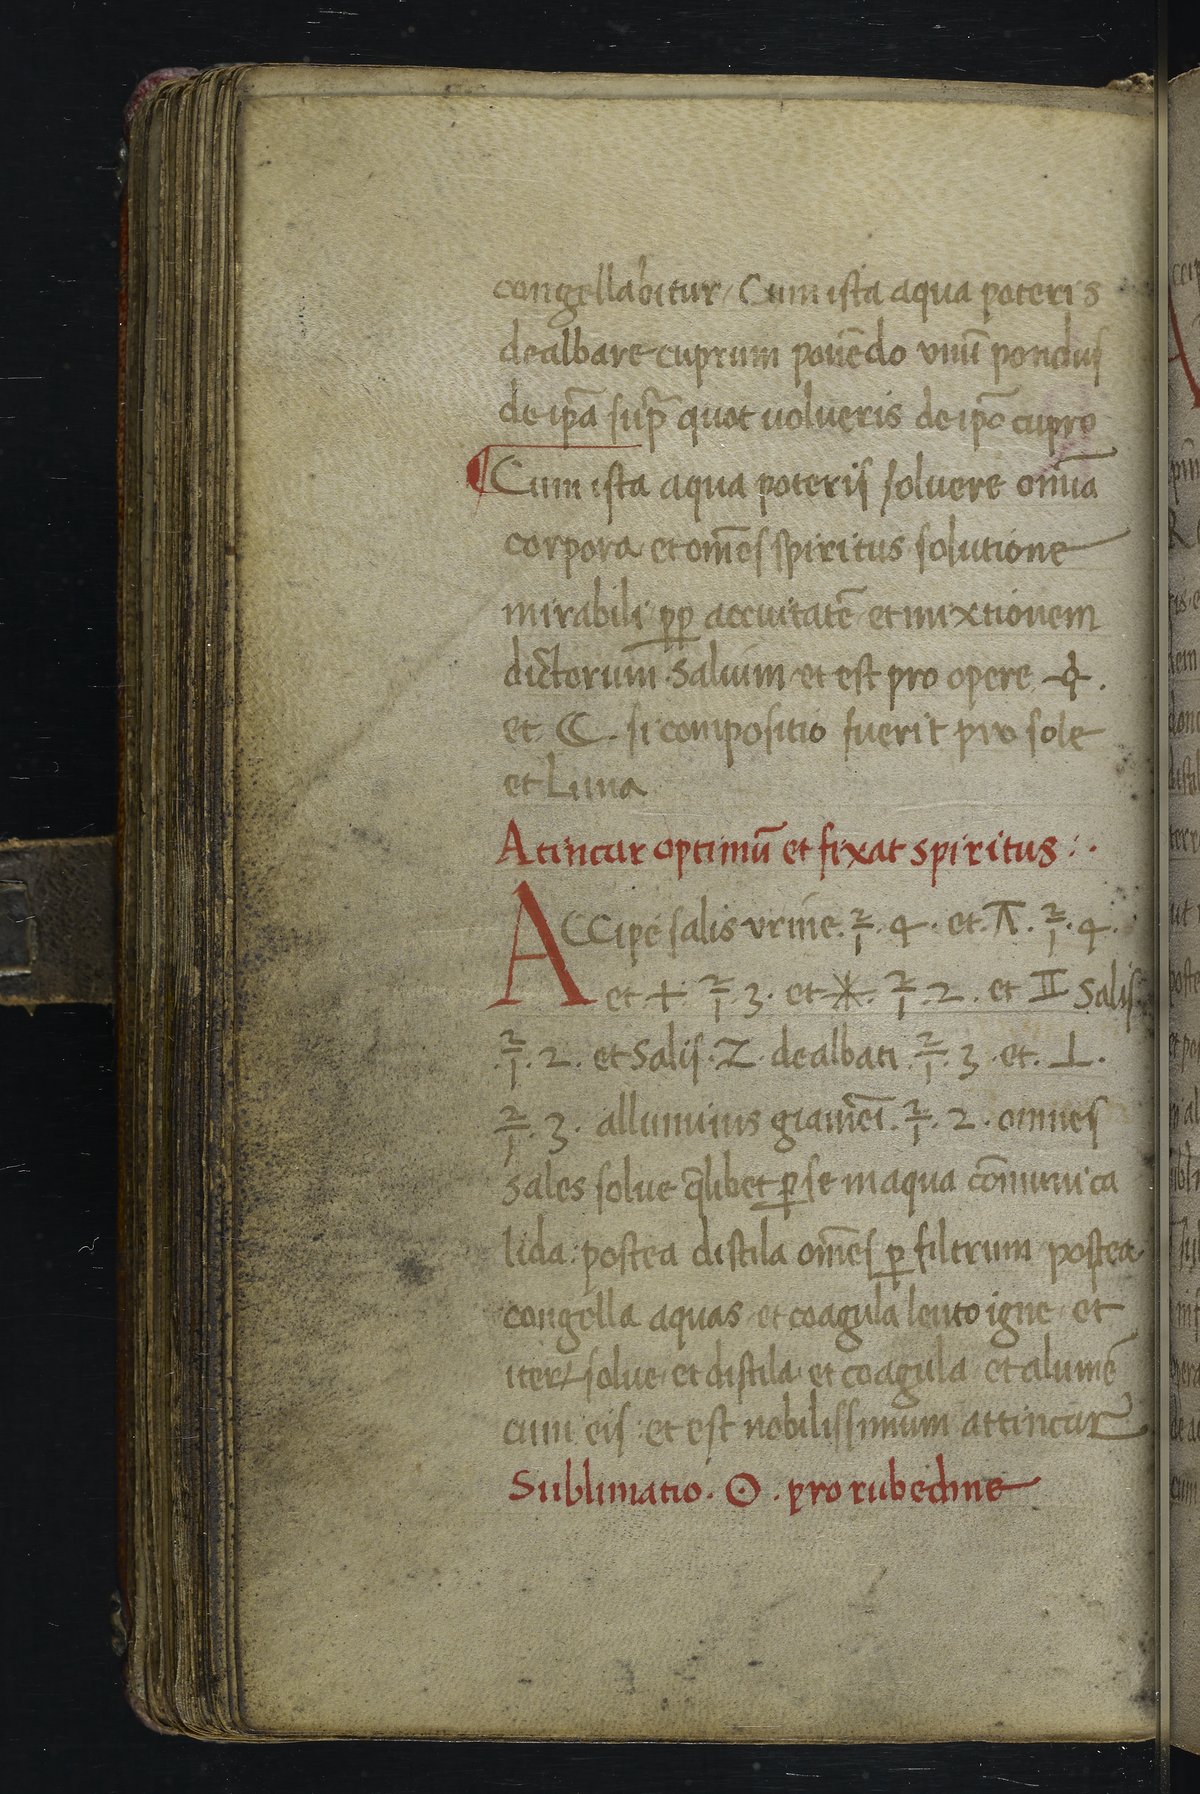 congellabitur / Cum ista aqua poteris
dealbare cuprum ponẽdo vnũ pondus
de ip̃a sup̃ quot volueris de ip̃o cupro
¶ Cum ista aqua poteris soluere om̃ia
corpora et om̃es spiritus solutione
mirabili ꝓpꝑ accuitatẽ et mixtionem
dictorum Salium et est pro opere
et ☾. si compositio fuerit pro sole
et Luna
Atincar optimũ et fixat spiritus :·
ACCipe salis vrine. 4. et. 4.
et 3. et 2. et Salis
2. et Salis. Z. dealbati 3. et. ⊥.
3. alluminis 2. omnes
sales solue q̃libet ꝑ se in aqua cõmuni ca
lida: postea distila om̃es ꝑ filtrum postea
congella aquas et coagula lento igne et
iteꝝ solue et distila et coagula et alumẽ
cum eis: et est nobilissimum attincar
Sublimatio. ☉. pro rubedine